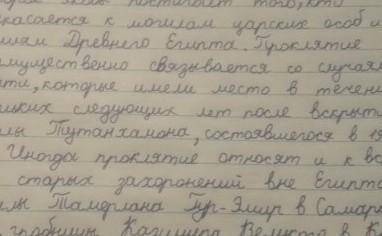 постигает того, кто
касается к могилам царских особ и
миям Древнего Египта. Проклятие
имущественно связывается со случаям
ти, которые имели место в течени
льких следующих лет после вскрыти
ы Тутанхамона, состоявшегося в 19
Иногда проклятие относят и к во
старых захоронений вне Египта
лы Тамерлана Гур-Эмир в Самарк
гробницы Казимира Великого в К